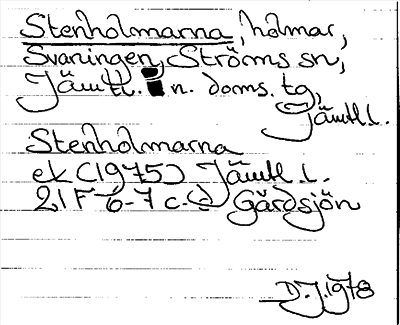 Stenholmarna, holmar,
Svaningen, Ströms sn,
Jämtl. n. doms. tg,
Jämtl. l.
Stenholmarna
ek (1975) Jämtl. l.
21 F 6-7 c-d Gärdsjön
D.J. 1978